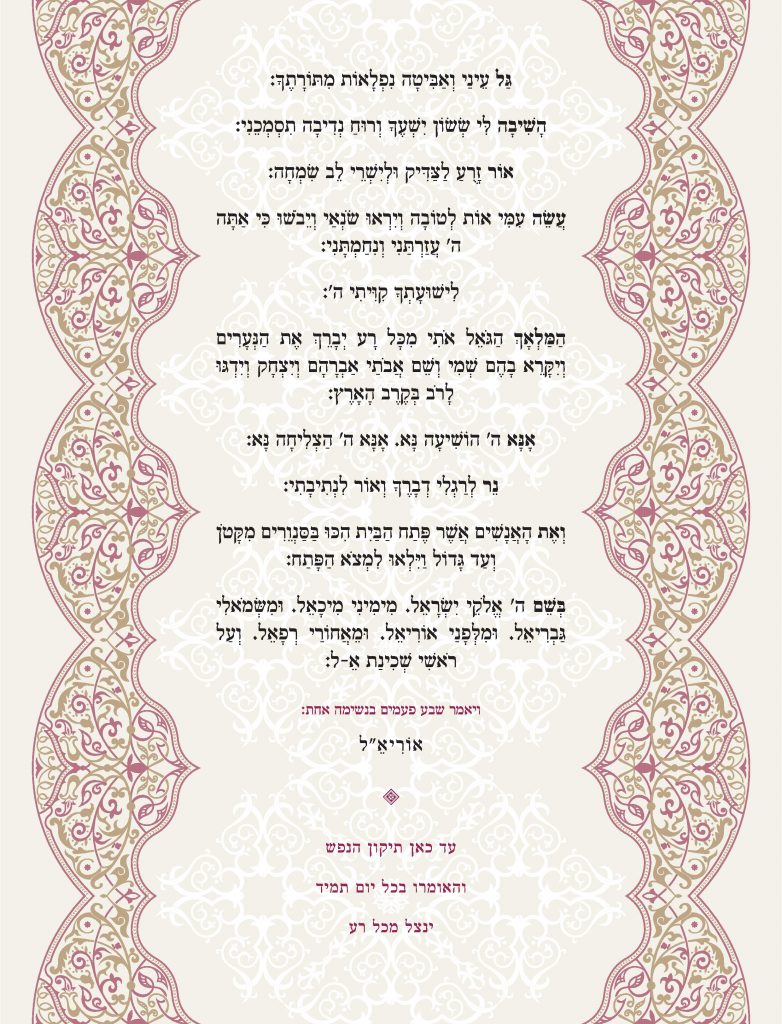 גַּל עֵינַי וְאַבִּיטָה נִפְלָאוֹת מִתּוֹרָתֶךָ:
הָשִׁיבָה לִּי שְׂשׂוֹן יִשְׁעֶךָ וְרוּחַ נְדִיבָה תִסְמְכֵנִי:
אוֹר זָרֻעַ לַצַּדִּיק וּלְיִשְׁרֵי לֵב שִׂמְחָה:
עֲשֵׂה עִמִּי אוֹת לְטוֹבָה וְיִרְאוּ שֹׂנְאַי וְיֵבֹשׁוּ כִּי אַתָּה
ה' עֲזַרְתַּנִי וְנִחַמְתָּנִי:
לִישׁוּעָתְךָ קִוִּיתִי ה':
הַמַּלְאָךְ הַגֹּאֵל אֹתִי מִכָּל רָע יְבָרֵךְ אֶת הַנְּעָרִים
וְיִקָּרֵא בָהֶם שְׁמִי וְשֵׁם אֲבֹתַי אַבְרָהָם וְיִצְחָק וְיִדְגּוּ
לָרֹב בְּקֶרֶב הָאָרֶץ:
אָנָּא ה' הוֹשִׁיעָה נָּא. אָנָּא ה' הַצְלִיחָה נָּא:
נֵר לְרַגְלִי דְבָרֶךָ וְאוֹר לִנְתִיבָתִי:
וְאֶת הָאֲנָשִׁים אֲשֶׁר פֶּתַח הַבַּיִת הִכּוּ בַּסַּנְוֵרִים מִקָּטֹן
וְעַד גָּדוֹל וַיִּלְאוּ לִמְצֹא הַפָּתַח:
בְּשֵׁם ה' אֱלֹקֵי יִשְׂרָאֵל. מִימִינִי מִיכָאֵל. וּמִשְּׂמֹאלִי
גַּבְרִיאֵל. וּמִלְּפָנַי אוֹרִיאֵל. וּמֵאֲחוֹרַי רְפָאֵל. וְעַל
רֹאשִׁי שְׁכִינַת אֵ-ל:
ויאמר שבע פעמים בנשימה אחת:
אוֹרִיאֵ"ל
עד כאן תיקון הנפש
והאומרו בכל יום תמיד
ינצל מכל רע